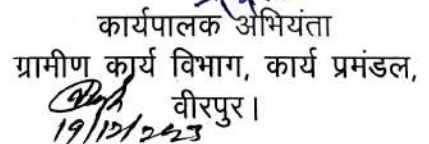 कार्यपालक अभियंता
ग्रामीण कार्य विभाग, कार्य प्रमंडल,
वीरपुर।
19/12/2023